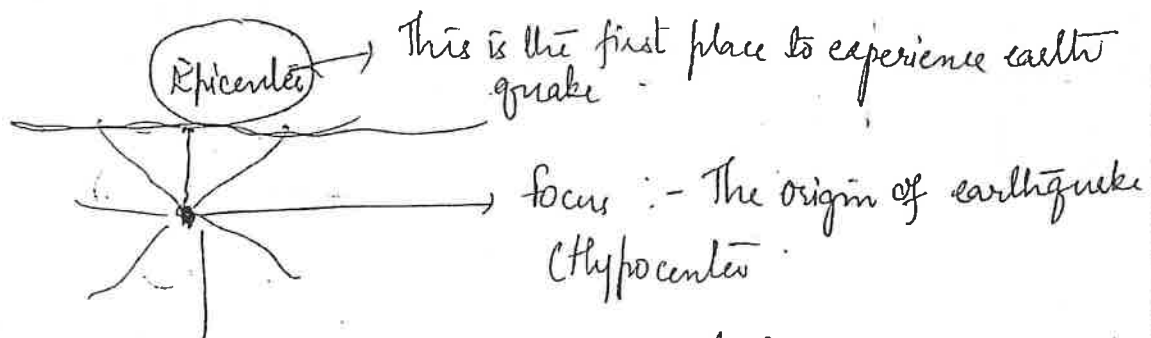 Epicenter → This is the first place to experience earth
quake.
focus :- The origin of earthquake
(Hypocenter